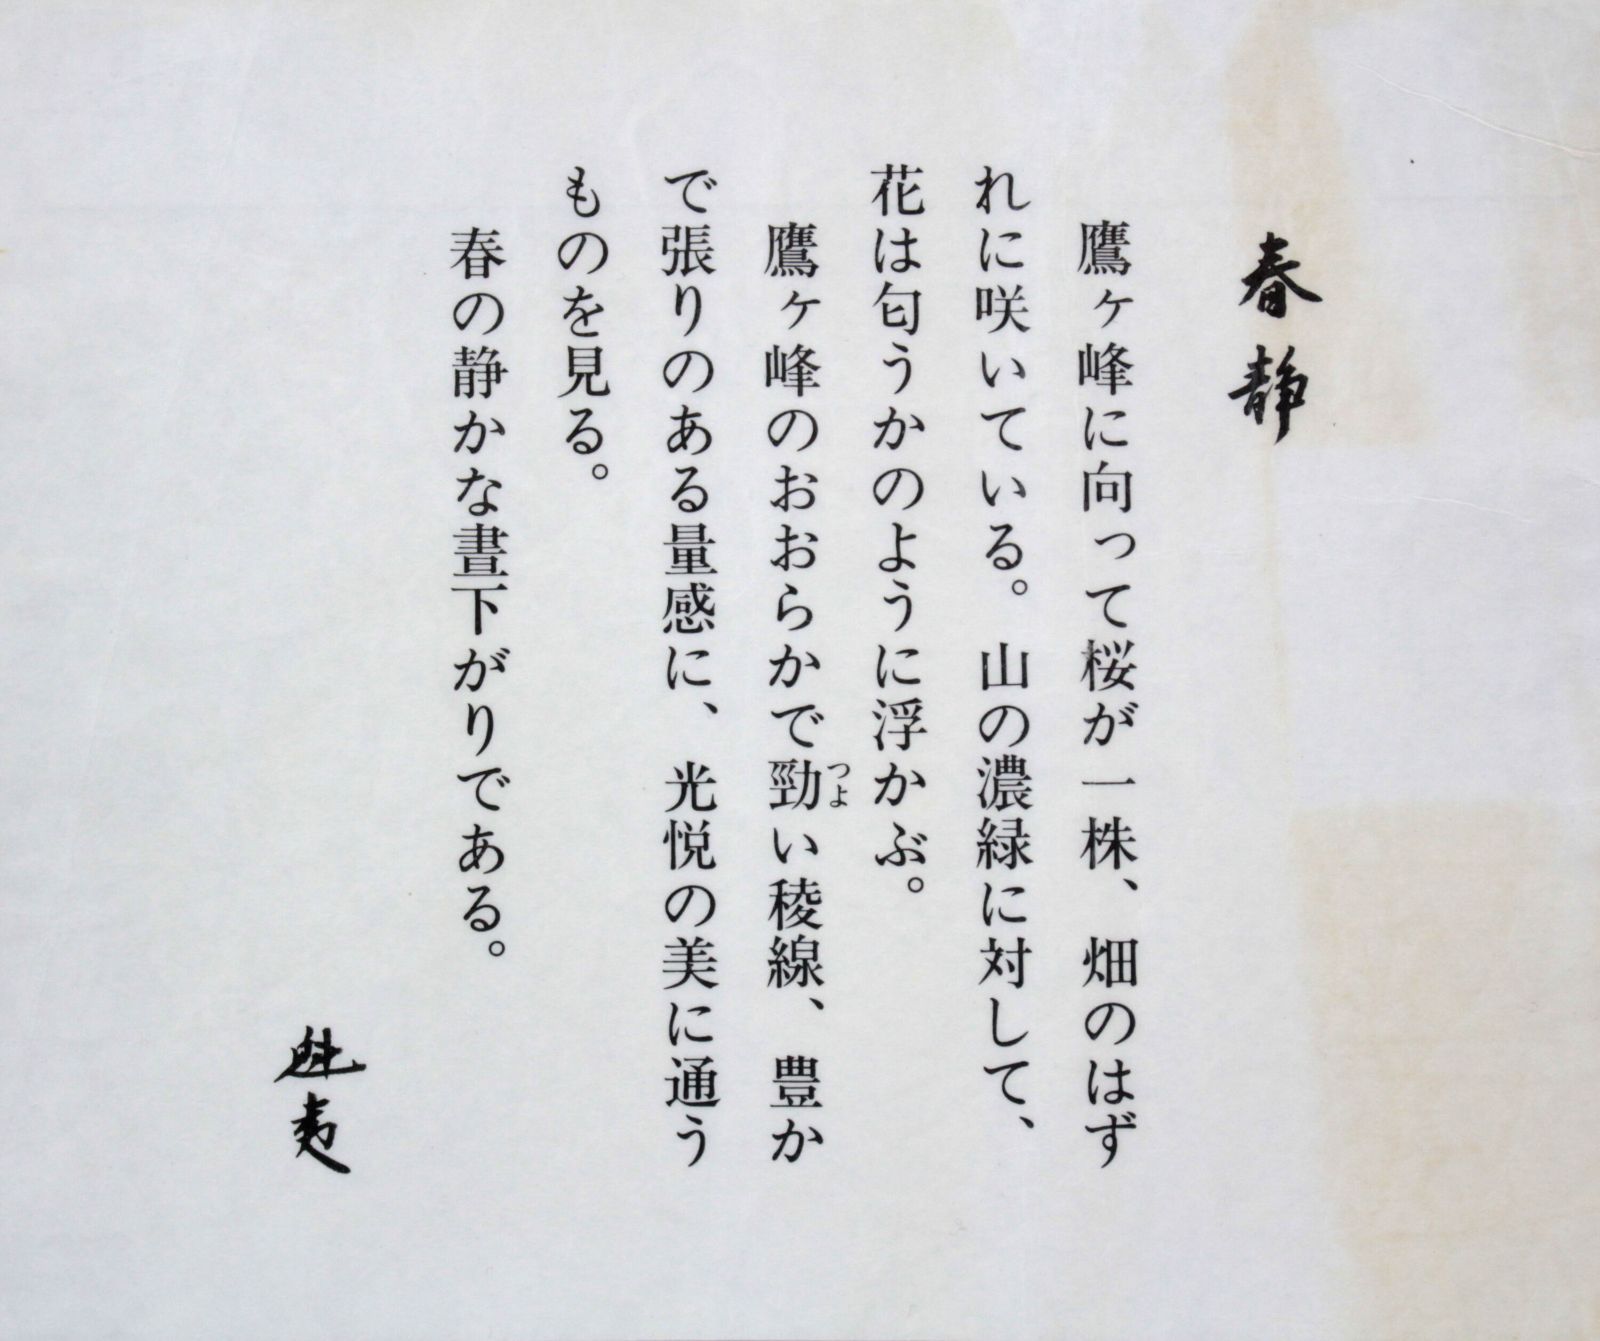 春静
鷹ヶ峰に向って桜が一株、畑のはず
れに咲いている。山の濃緑に対して、
花は匂うかのように浮かぶ。
鷹ヶ峰のおおらかで勁い稜線、豊か
つよ
で張りのある量感に、光悦の美に通う
ものを見る。
春の静かな晝下がりである。
魁夷